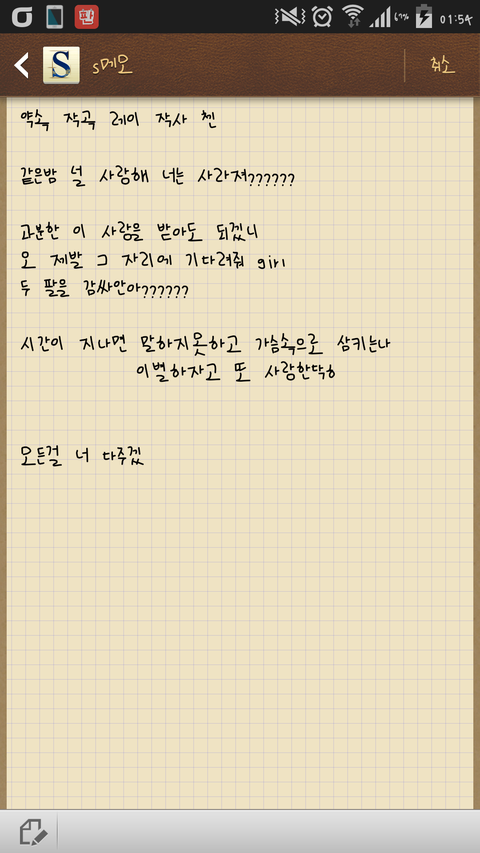 67% 01:54
S S메모 취소
약속 작곡 레이 작사 첸
같은밤 널 사랑해 너는 사라져??????
과분한 이 사람을 받아도 되겠니
오 제발 그 자리에 기다려줘 girl
두 팔을 감싸안아??????
시간이 지나면 말하지못하고 가슴속으로 삼키는나
이별하자고 또 사랑한닥ㅎ
모든걸 너 다주겠